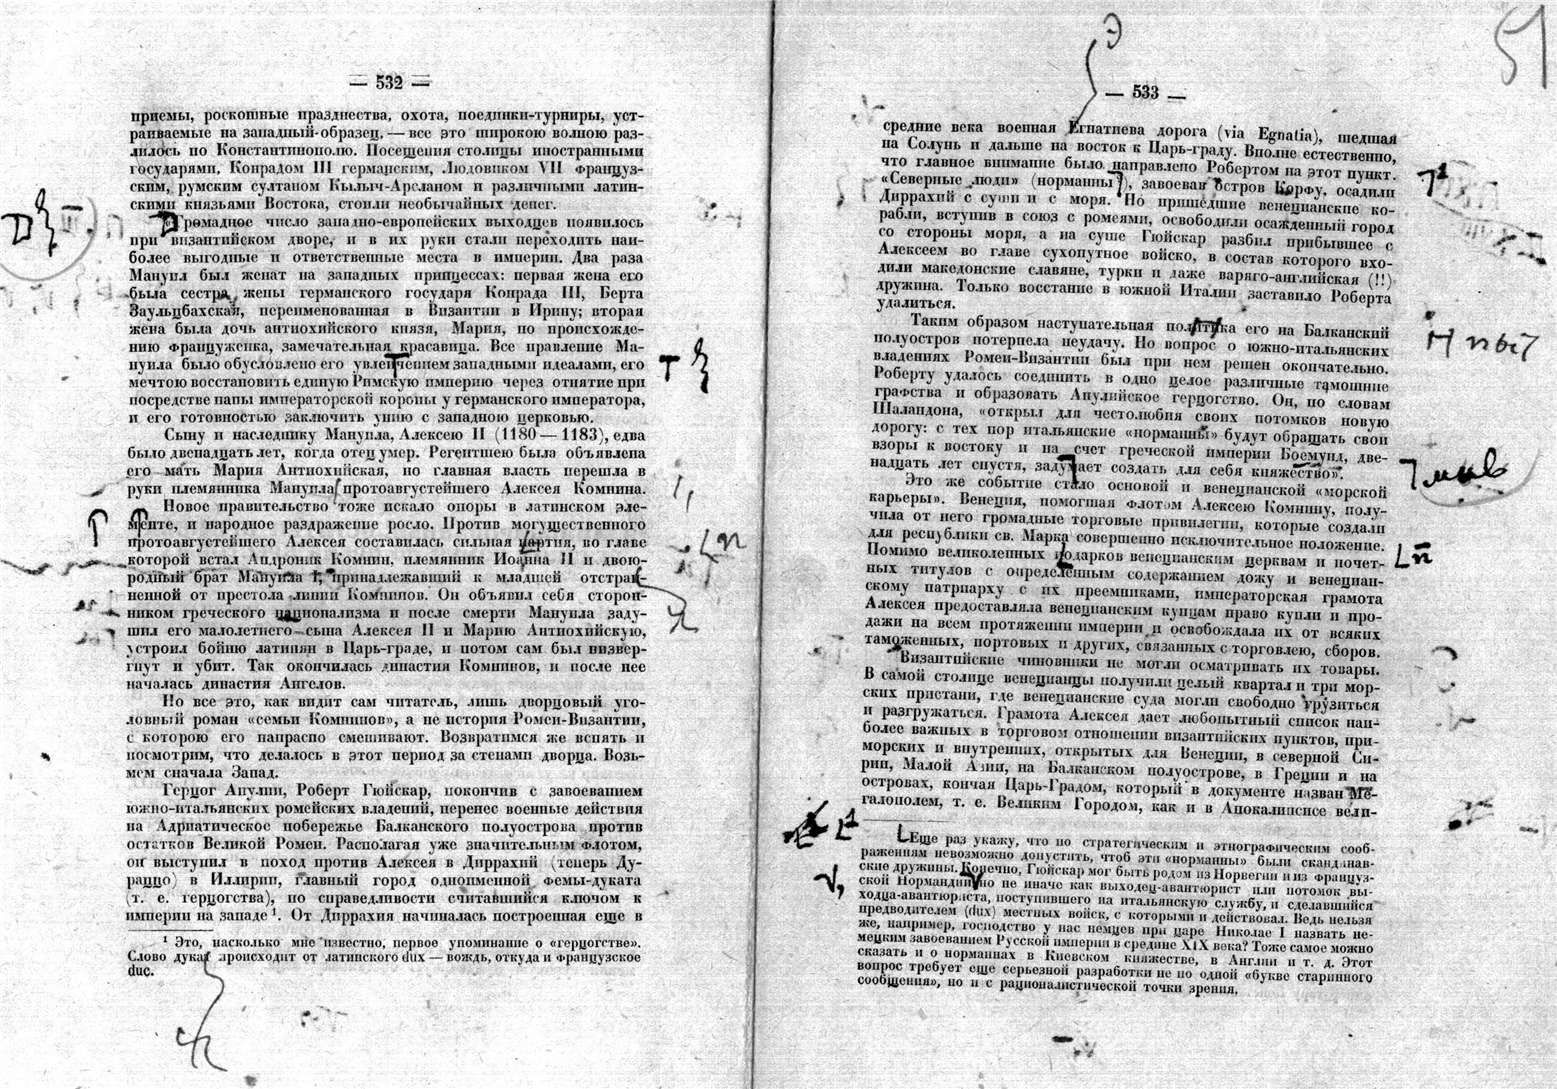 — 532 —
приемы, роскошные празднества, охота, поединки-турниры, уст-
раиваемые на западный образец, — все это широкою волною раз-
лилось по Константинополю. Посещения столицы иностранными
государями, Конрадом III германским, Людовиком VII француз-
ским, румским султаном Кылыч-Арсланом и различными латин-
скими князьями Востока, стоили необычайных денег.
Громадное число западно-европейских выходцев появилось
при византийском дворе, и в их руки стали переходить наи-
более выгодные и ответственные места в империи. Два раза
Мануил был женат на западных принцессах: первая жена его
была сестра жены германского государя Конрада III, Берта
Заульцбахская, переименованная в Византии в Ирину; вторая
жена была дочь антиохийского князя, Мария, по происхожде-
нию француженка, замечательная красавица. Все правление Ма-
нуила было обусловлено его увлечением западными идеалами, его
мечтою восстановить единую Римскую империю через отнятие при
посредстве папы императорской короны у германского императора,
и его готовностью заключить унию с западною церковью.
Сыну и наследнику Мануила, Алексею II (1180 — 1183), едва
было двенадцать лет, когда отец умер. Регентшею была объявлена
его мать Мария Антиохийская, но главная власть перешла в
руки племянника Мануила протоавгустейшего Алексея Комнина.
Новое правительство тоже искало опоры в латинском эле-
менте, и народное раздражение росло. Против могущественного
протоавгустейшего Алексея составилась сильная партия, во главе
которой встал Андроник Комнин, племянник Иоанна II и двою-
родный брат Мануила I, принадлежавший к младшей отстран-
ненной от престола линии Комнинов. Он объявил себя сторон-
ником греческого национализма и после смерти Мануила заду-
шил его малолетнего сына Алексея II и Марию Антиохийскую,
устроил бойню латинян в Царь-граде, и потом сам был низвер-
гнут и убит. Так окончилась династия Комнинов, и после нее
началась династия Ангелов.
Но все это, как видит сам читатель, лишь дворцовый уго-
ловный роман «семьи Комнинов», а не история Ромеи-Византии,
с которою его напрасно смешивают. Возвратимся же вспять и
посмотрим, что делалось в этот период за стенами дворца. Возь-
мем сначала Запад.
Герцог Апулии, Роберт Гюйскар, покончив с завоеванием
южно-итальянских ромейских владений, перенес военные действия
на Адриатическое побережье Балканского полуострова против
остатков Великой Ромеи. Располагая уже значительным флотом,
он выступил в поход против Алексея в Диррахий (теперь Ду-
раццо) в Иллирии, главный город одноименной фемы-дуката
(т. е. герцогства), по справедливости считавшийся ключом к
империи на западе ¹. От Диррахия начиналась построенная еще в
¹ Это, насколько мне известно, первое упоминание о «герцогстве».
Слово дука происходит от латинского dux — вождь, откуда и французское
duc.
51
Э
— 533 —
средние века военная Егнатиева дорога (via Egnatia), шедшая
на Солунь и дальше на восток к Царь-граду. Вполне естественно,
что главное внимание было направлено Робертом на этот пункт.
«Северные люди» (норманны), завоевав остров Корфу, осадили
Диррахий с суши и с моря. Но пришедшие венецианские ко-
рабли, вступив в союз с ромеями, освободили осажденный город
со стороны моря, а на суше Гюйскар разбил прибывшее с
Алексеем во главе сухопутное войско, в состав которого вхо-
дили македонские славяне, турки и даже варяго-английская (!!)
дружина. Только восстание в южной Италии заставило Роберта
удалиться.
Таким образом наступательная политика его на Балканский
полуостров потерпела неудачу. Но вопрос о южно-итальянских
владениях Ромеи-Византии был при нем решен окончательно.
Роберту удалось соединить в одно целое различные тамошние
графства и образовать Апулийское герцогство. Он, по словам
Шаландона, «открыл для честолюбия своих потомков новую
дорогу: с тех пор итальянские «норманны» будут обращать свои
взоры к востоку и на счет греческой империи Боемунд, две-
надцать лет спустя, задумает создать для себя княжество».
Это же событие стало основой и венецианской «морской
карьеры». Венеция, помогшая флотом Алексею Комнину, полу-
чила от него громадные торговые привилегии, которые создали
для республики св. Марка совершенно исключительное положение.
Помимо великолепных подарков венецианским церквам и почет-
ных титулов с определенным содержанием дожу и венециан-
скому патриарху с их преемниками, императорская грамота
Алексея предоставляла венецианским купцам право купли и про-
дажи на всем протяжении империи и освобождала их от всяких
таможенных, портовых и других, связанных с торговлею, сборов.
Византийские чиновники не могли осматривать их товары.
В самой столице венецианцы получили целый квартал и три мор-
ских пристани, где венецианские суда могли свободно грузиться
и разгружаться. Грамота Алексея дает любопытный список наи-
более важных в торговом отношении византийских пунктов, при-
морских и внутренних, открытых для Венеции, в северной Си-
рии, Малой Азии, на Балканском полуострове, в Греции и на
островах, кончая Царь-Градом, который в документе назван Ме-
галополем, т. е. Великим Городом, как и в Апокалипсисе вели-
Еще раз укажу, что по стратегическим и этнографическим сооб-
ражениям невозможно допустить, чтоб эти «норманны» были сканднав-
ские дружины. Конечно, Гюйскар мог быть родом из Норвегии и из француз-
ской Нормандии но не иначе как выходец-авантюрист или потомок вы-
ходца-авантюриста, поступившего на итальянскую службу, и сделавшийся
предводителем (dux) местных войск, с которыми и действовал. Ведь нельзя
же, например, господство у нас немцев при царе Николае I назвать не-
мецким завоеванием Русской империи в средине XIX века? Тоже самое можно
сказать и о норманнах в Киевском княжестве, в Англии и т. д. Этот
вопрос требует еще серьезной разработки не по одной «букве старинного
сообщения», но и с рационалистической точки зрения,